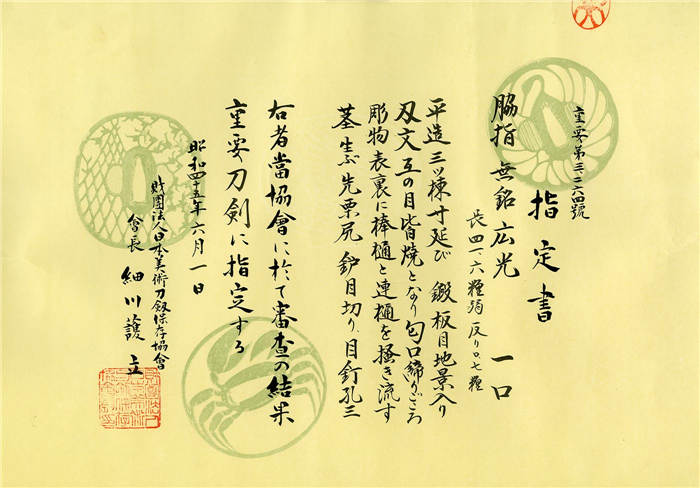 重要第三二六四號
指定書
脇指 無銘 広光 一口
長四一、六糎弱 反り〇、七糎
平造 三ツ棟 寸延び 鍛 板目地景入り
刃文 互の目皆焼となり 匂口締りごころ
彫物 表裏に棒樋と連樋を掻き流す
茎 生ぶ 先栗尻 鑢目切り 目釘孔三
右者當協會に於て審査の結果
重要刀剣に指定する
昭和四十五年六月一日
財團法人日本美術刀剱保存協會
會長 細川護立